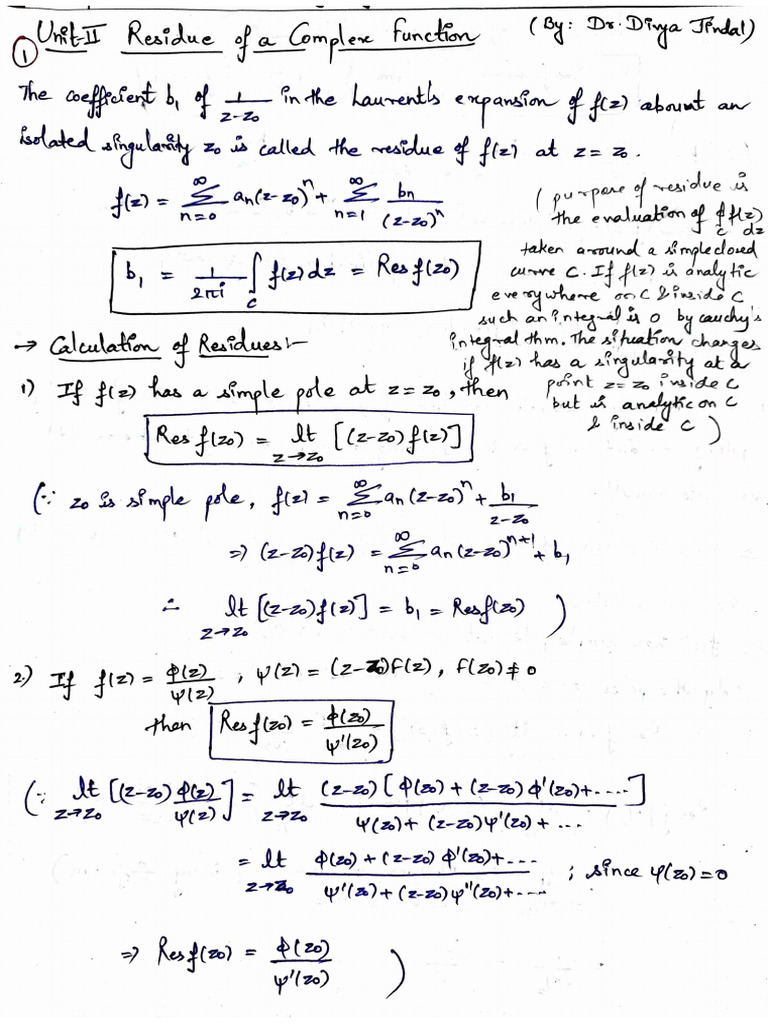 ① Unit-II Residue of a Complex Function (By: Dr. Divya Jindal)
The coefficient b₁ of 1/(z-z₀) in the Laurent's expansion of f(z) about an
isolated singularity z₀ is called the residue of f(z) at z = z₀.
f(z) = ∑_{n=0}^{∞} aₙ(z-z₀)ⁿ + ∑_{n=1}^{∞} bₙ/(z-z₀)ⁿ
b₁ = 1/(2πi) ∫_C f(z)dz = Res f(z₀)
( purpose of residue is
the evaluation of ∮_C f(z) dz
taken around a simple closed
curve C. If f(z) is analytic
everywhere on C & inside C
such an integral is 0 by cauchy's
integral thm. The situation changes
if f(z) has a singularity at a
point z = z₀ inside C
but is analytic on C
& inside C )
→ Calculation of Residues:-
1) If f(z) has a simple pole at z = z₀, then
Res f(z₀) = lt_{z→z₀} [(z-z₀)f(z)]
(∵ z₀ is simple pole, f(z) = ∑_{n=0}^{∞} aₙ(z-z₀)ⁿ + b₁/(z-z₀)
⇒ (z-z₀)f(z) = ∑_{n=0}^{∞} aₙ(z-z₀)ⁿ⁺¹ + b₁
∴ lt_{z→z₀} [(z-z₀)f(z)] = b₁ = Res f(z₀) )
2.) If f(z) = φ(z)/ψ(z) ; ψ(z) = (z-z₀)F(z), F(z₀) ≠ 0
then Res f(z₀) = φ(z₀)/ψ'(z₀)
(∵ lt_{z→z₀} [(z-z₀) φ(z)/ψ(z)] = lt_{z→z₀} (z-z₀)[φ(z₀) + (z-z₀)φ'(z₀)+....] / ψ(z₀) + (z-z₀)ψ'(z₀) + ...
= lt_{z→z₀} φ(z₀) + (z-z₀) φ'(z₀)+.... / ψ'(z₀) + (z-z₀)ψ''(z₀)+.... ; since ψ(z₀) = 0
⇒ Res f(z₀) = φ(z₀)/ψ'(z₀) )